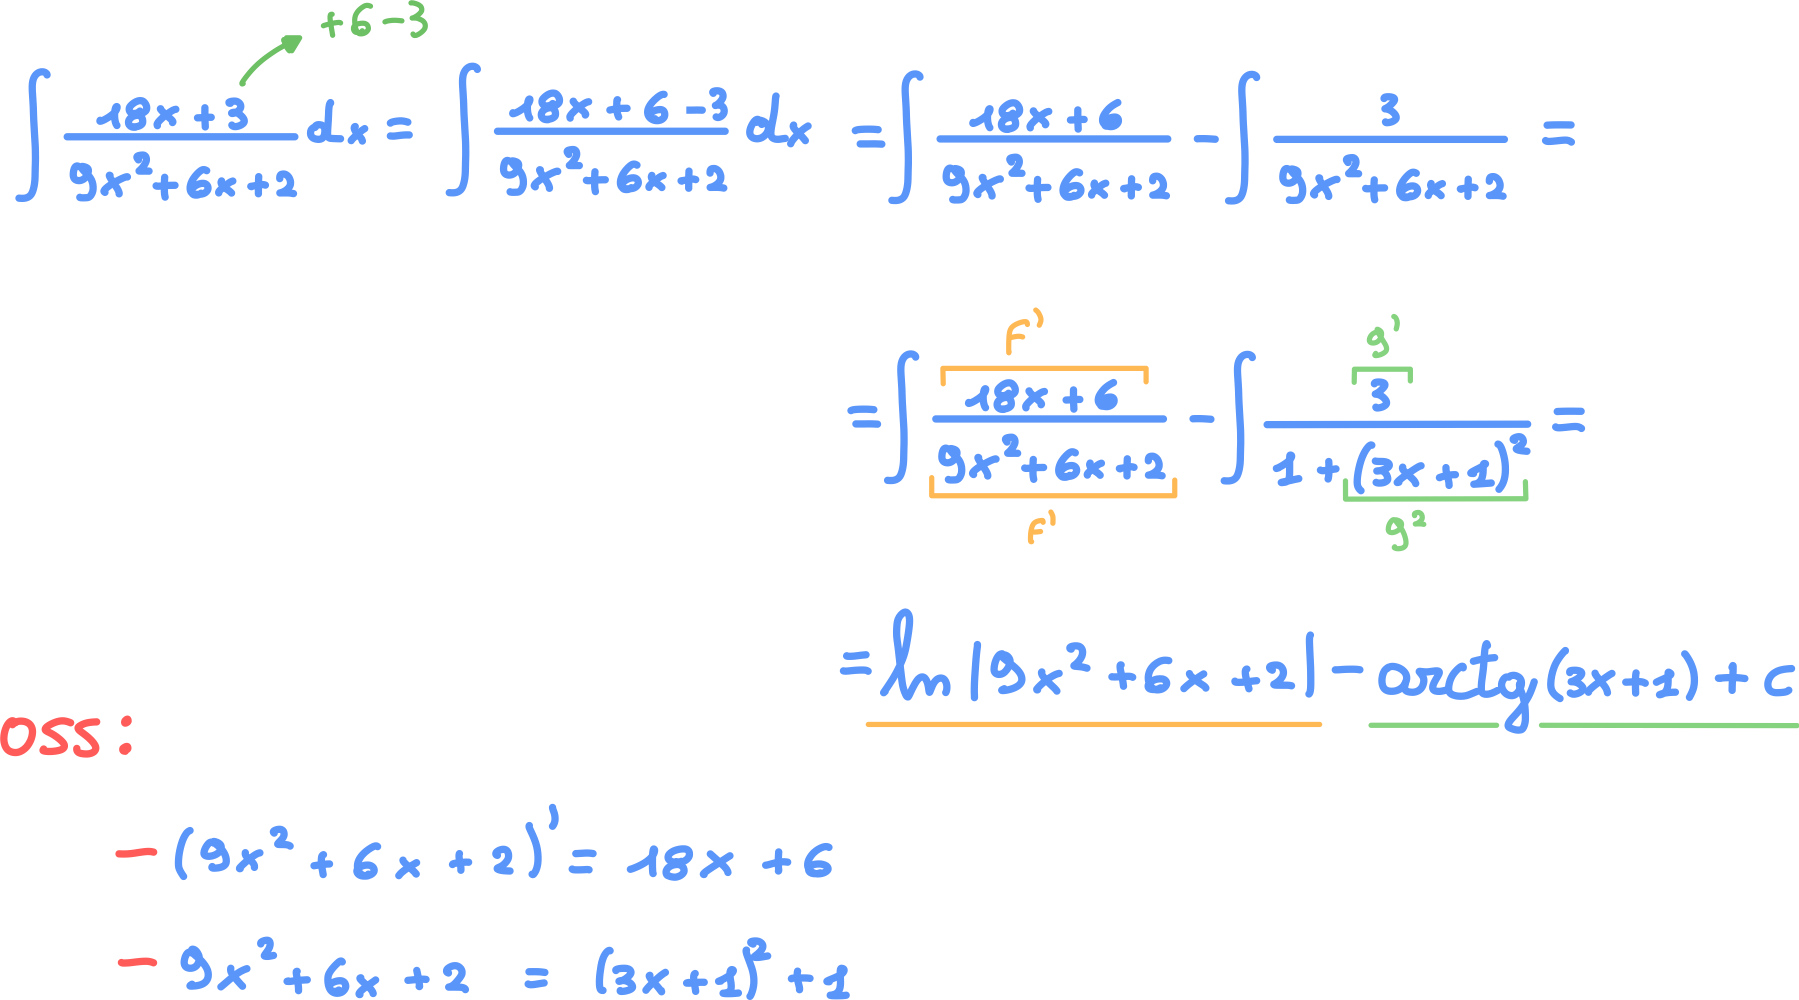 +6-3
∫ (18x+3)/(9x²+6x+2) dx = ∫ (18x+6-3)/(9x²+6x+2) dx = ∫ (18x+6)/(9x²+6x+2) - ∫ 3/(9x²+6x+2) =
F' g'
= ∫ (18x+6)/(9x²+6x+2) - ∫ 3/(1+(3x+1)²) =
F' g²
= ln|9x²+6x+2| - arctg(3x+1) + c
OSS:
- (9x²+6x+2)' = 18x+6
- 9x²+6x+2 = (3x+1)²+1